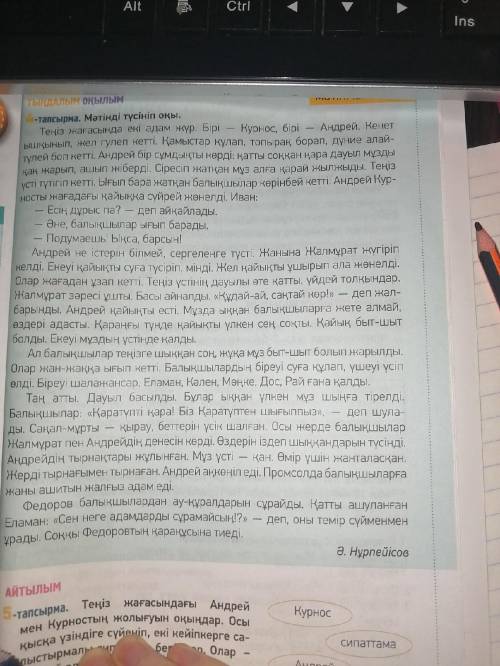 Alt
Ctrl
Ins
ТЫҢДАЛЫМ ОҚЫЛЫМ
4-тапсырма. Мәтінді түсініп оқы.
Теңіз жағасында екі адам жүр. Бірі — Курнос, бірі — Андрей. Кенет
ышқынып, жел гулеп кетті. Қамыстар құлап, топырақ борап, дүние алай-
түлей боп кетті. Андрей бір сұмдықты көрді: қатты соққан қара дауыл мұзды
қақ жарып, ашып жіберді. Сіресіп жатқан мұз алға қарай жылжыды. Теңіз
үсті түтігіп кетті. Ығып бара жатқан балықшылар көрінбей кетті. Андрей Кур-
носты жағадағы қайыққа сүйрей жөнелді. Иван:
— Есің дұрыс па? — деп айқайлады.
— Әне, балықшылар ығып барады.
— Подумаешь! Ықса, барсын!
Андрей не істерін білмей, сергелеңге түсті. Жанына Жалмұрат жүгіріп
келді. Екеуі қайықты суға түсіріп, мінді. Жел қайықты ұшырып ала жөнелді.
Олар жағадан ұзап кетті. Теңіз үстінің дауылы өте қатты: үйдей толқындар.
Жалмұрат зәресі ұшты. Басы айналды. «Құдай-ай, сақтай көр!» — деп жал-
барынды. Андрей қайықты есті. Мұзда ыққан балықшыларға жете алмай,
өздері адасты. Қараңғы түнде қайықты үлкен сең соқты. Қайық быт-шыт
болды. Екеуі мұздың үстінде қалды.
Ал балықшылар теңізге шыққан соң, жұқа мұз быт-шыт болып жарылды.
Олар жан-жаққа ығып кетті. Балықшылардың біреуі суға құлап, үшеуі үсіп
өлді. Біреуі шалажансар. Еламан, Кәлен, Мөңке, Дос, Рай ғана қалды.
Таң атты. Дауыл басылды. Бұлар ыққан үлкен мұз шыңға тірелді.
Балықшылар: «Қаратүпті қара! Біз Қаратүптен шығыппыз», — деп шула-
ды. Сақал-мұрты — қырау, беттерін үсік шалған. Осы жерде балықшылар
Жалмұрат пен Андрейдің денесін көрді. Өздерін іздеп шыққандарын түсінді.
Андрейдің тырнақтары жұлынған. Мұз үсті — қан. Өмір үшін жанталасқан.
Жерді тырнағымен тырнаған. Андрей ақкөңіл еді. Промсолда балықшыларға
жаны ашитын жалғыз адам еді.
Федоров балықшылардан ау-құралдарын сұрайды. Қатты ашуланған
Еламан: «Сен неге адамдарды сұрамайсың!?» — деп, оны темір сүйменмен
ұрады. Соққы Федоровтың қарақұсына тиеді.
Ә. Нұрпейісов
АЙТЫЛЫМ
5-тапсырма. Теңіз жағасындағы Андрей
мен Курностың жолығуын оқыңдар. Осы
қысқа үзіндіге сүйеніп, екі кейіпкерге са-
Олар –
Курнос
сипаттама
Андрей